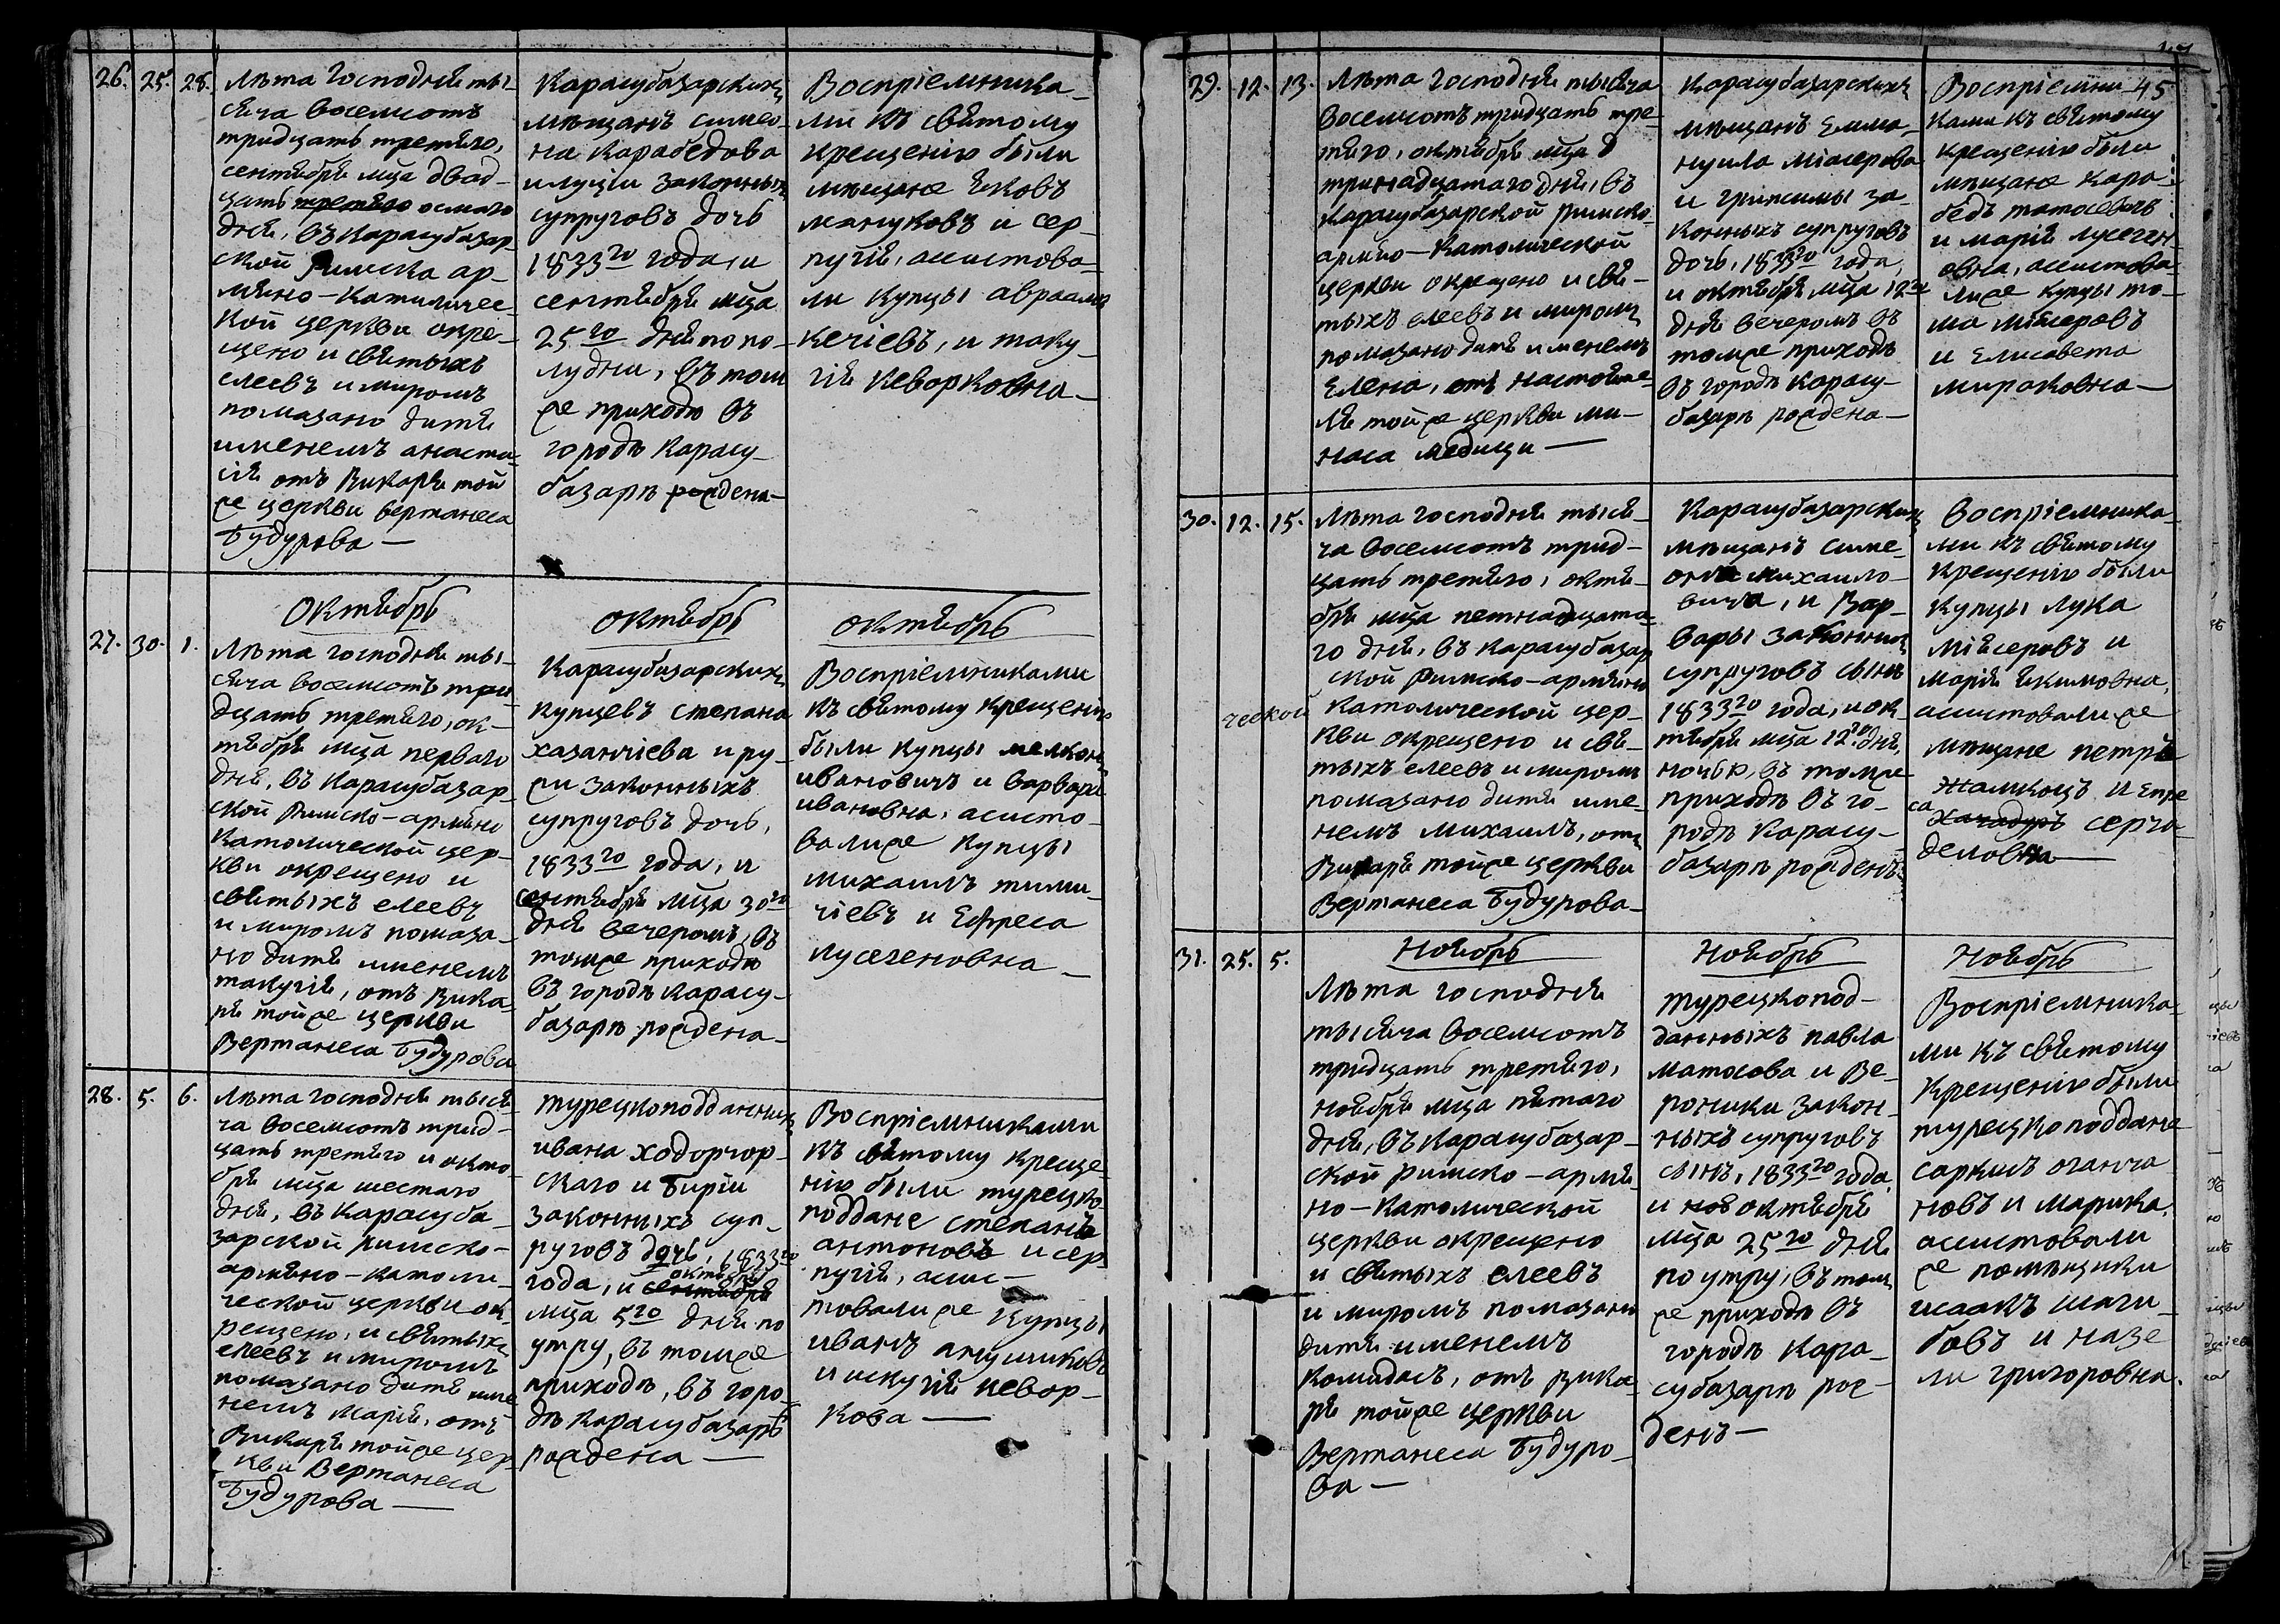 26. 25. 28.
Лѣта Господня ты-
сяча восемсотъ
тридцать третяго,
сентября мца двад-
цать третяго осмаго
дня, въ Карасубазар-
ской Римско ар-
мяно-Католичес-
кой церкви окре-
щено и святыхъ
елеевъ и миромъ
помазано дитя
именемъ анаста-
сія отъ Викарія той
же церкви вертанеса
Будурова —
Карасубазарскихъ
мѣщанъ симео-
на Карабедова
и луціи законныхъ
супруговъ дочь
1833го года, и
сентября мца
25го дня по по-
лудни, въ том
же приходѣ въ
городѣ Карасу-
базарѣ рождена —
Воспріемника-
ми къ святому
крещенію были
мѣщане яковъ
мануковъ и сер-
пугія, асистова-
ли купцы авраамъ
кечіевъ, и таку-
гія Кеворковна —
27. 30. 1.
Октябрь
Лѣта господня ты-
сяча восемсотъ три-
дцать третяго, ок-
тября мца перваго
дня, въ Карасубазар-
ской Римско-армяно
Католической цер-
кви окрещено и
святыхъ елеевъ
и миромъ помаза-
но дитя именемъ
такугія, отъ Вика-
рія той же церкви
Вертанеса Будурова
Октябрь
Карасубазарскихъ
купцевъ степана
хазанчіева и ру-
жи законныхъ
супруговъ дочь,
1833го года, и
сентября мца 30го
дня вечеромъ, въ
томже приходѣ
въ городѣ Карасу-
базарѣ рождена —
Октябрь
Воспріемниками
къ святому крещенію
были купцы мелконъ
ивановичъ и варвара
ивановна, асисто-
валиже купцы
михаилъ тими-
чіевъ и Ефреса
лусегеновна —
28. 5. 6.
Лѣта господня тыся-
ча восемсотъ трид-
цать третяго и октя-
бря мца шестаго
дня, въ Карасуба-
зарской римско-
армяно-католи-
ческой церкви ок-
рещено, и святыхъ
елеевъ и миромъ
помазано дитя име-
немъ Марія, отъ
Викарія тойже цер-
кви Вертанеса
Будурова —
турецкоподданныхъ
ивана ходоргор-
скаго и Бирiи
законныхъ суп-
руговъ дочь, 1833го
года, и сентября октября
мца 5го дня по
утру, въ томже
приходѣ, въ горо-
дѣ Карасубазарѣ
рождена —
Воспріемниками
къ святому креще-
нію были турецко
поддане степанъ
антоновъ и сер
пугія, асис-
товалиже купцы
иванъ анушиковъ
и искугія кевор-
кова —
29. 12. 13.
Лѣта господня тысяча
восемсотъ тридцать тре-
тяго, октября мца в
тринадцатаго дня, въ
Карасубазарской римско-
армяно-Католической
церкви окрещено и свя-
тыхъ елеевъ и миромъ
помазано дитя именемъ
Елена, отъ настояте-
ля тойже церкви ми-
наса медици —
Карасубазарскихъ
мѣщанъ Емма-
нуила міасерова
и грипсимы за-
конныхъ супруговъ
дочь, 1833го года,
и октября мца 12го
дня вечеромъ въ
томже приходѣ
въ городѣ Карасу-
базарѣ рождена —
45
Воспріемни-
ками къ святому
крещенію были
мѣщане кара-
бедъ татосевичь
и марія лусеген-
овна, асистова-
лиже купцы то-
ма міясеровъ
и Елисавета
мираковна —
30. 12. 15.
Лѣта господня тыся-
ча восемсотъ трид-
цать третяго, октя-
бря мца петнадцата-
го дня, въ Карасубазар
ской Римско-армяно
ческой
католической цер-
кви окрещено и свя-
тыхъ елеевъ и миромъ
помазано дитя име-
немъ михаилъ, отъ
Викарія тойже церкви
Вертанеса Будурова —
Карасубазарскихъ
мѣщанъ симе-
она михаило-
вича, и Вар-
вары законныхъ
супруговъ сынъ
1833го года, и ок-
тября мца 12го дня,
ночью, въ томже
приходѣ въ го-
родѣ Карасу-
базарѣ рожденъ
Воспріемника-
ми къ святому
крещенію были
купцы лука
міясеровъ и
марія якимовна,
асистовалиже
мѣщане петръ
жамкоцъ и епре
са хачадуръ серча-
деловна —
31. 25. 5.
Ноябрь
Лѣта господня
тысяча восемсотъ
тридцать третяго,
ноября мца пятаго
дня, въ Карасубазар-
ской римско-армя-
но-Католической
церкви окрещено
и святыхъ елеевъ
и миромъ помазано
дитя именемъ
Комидасъ, отъ вика-
рія тойже церкви
Вертанеса Будуро-
ва —
Ноябрь
турецкопод-
данныхъ павла
матосова и Ве-
роники закон-
ныхъ супруговъ
сынъ, 1833го года,
и ноя октября
мца 25го дня
по утру, въ том
же приходѣ въ
городѣ Кара-
субазарѣ рож-
денъ —
Ноябрь
Воспріемника-
ми къ святому
крещенію были
турецкоподдане
саркисъ оганча
новъ и марика,
асистовали
же помѣщики
исаакъ шаги-
бовъ и назе
ли григоровна.